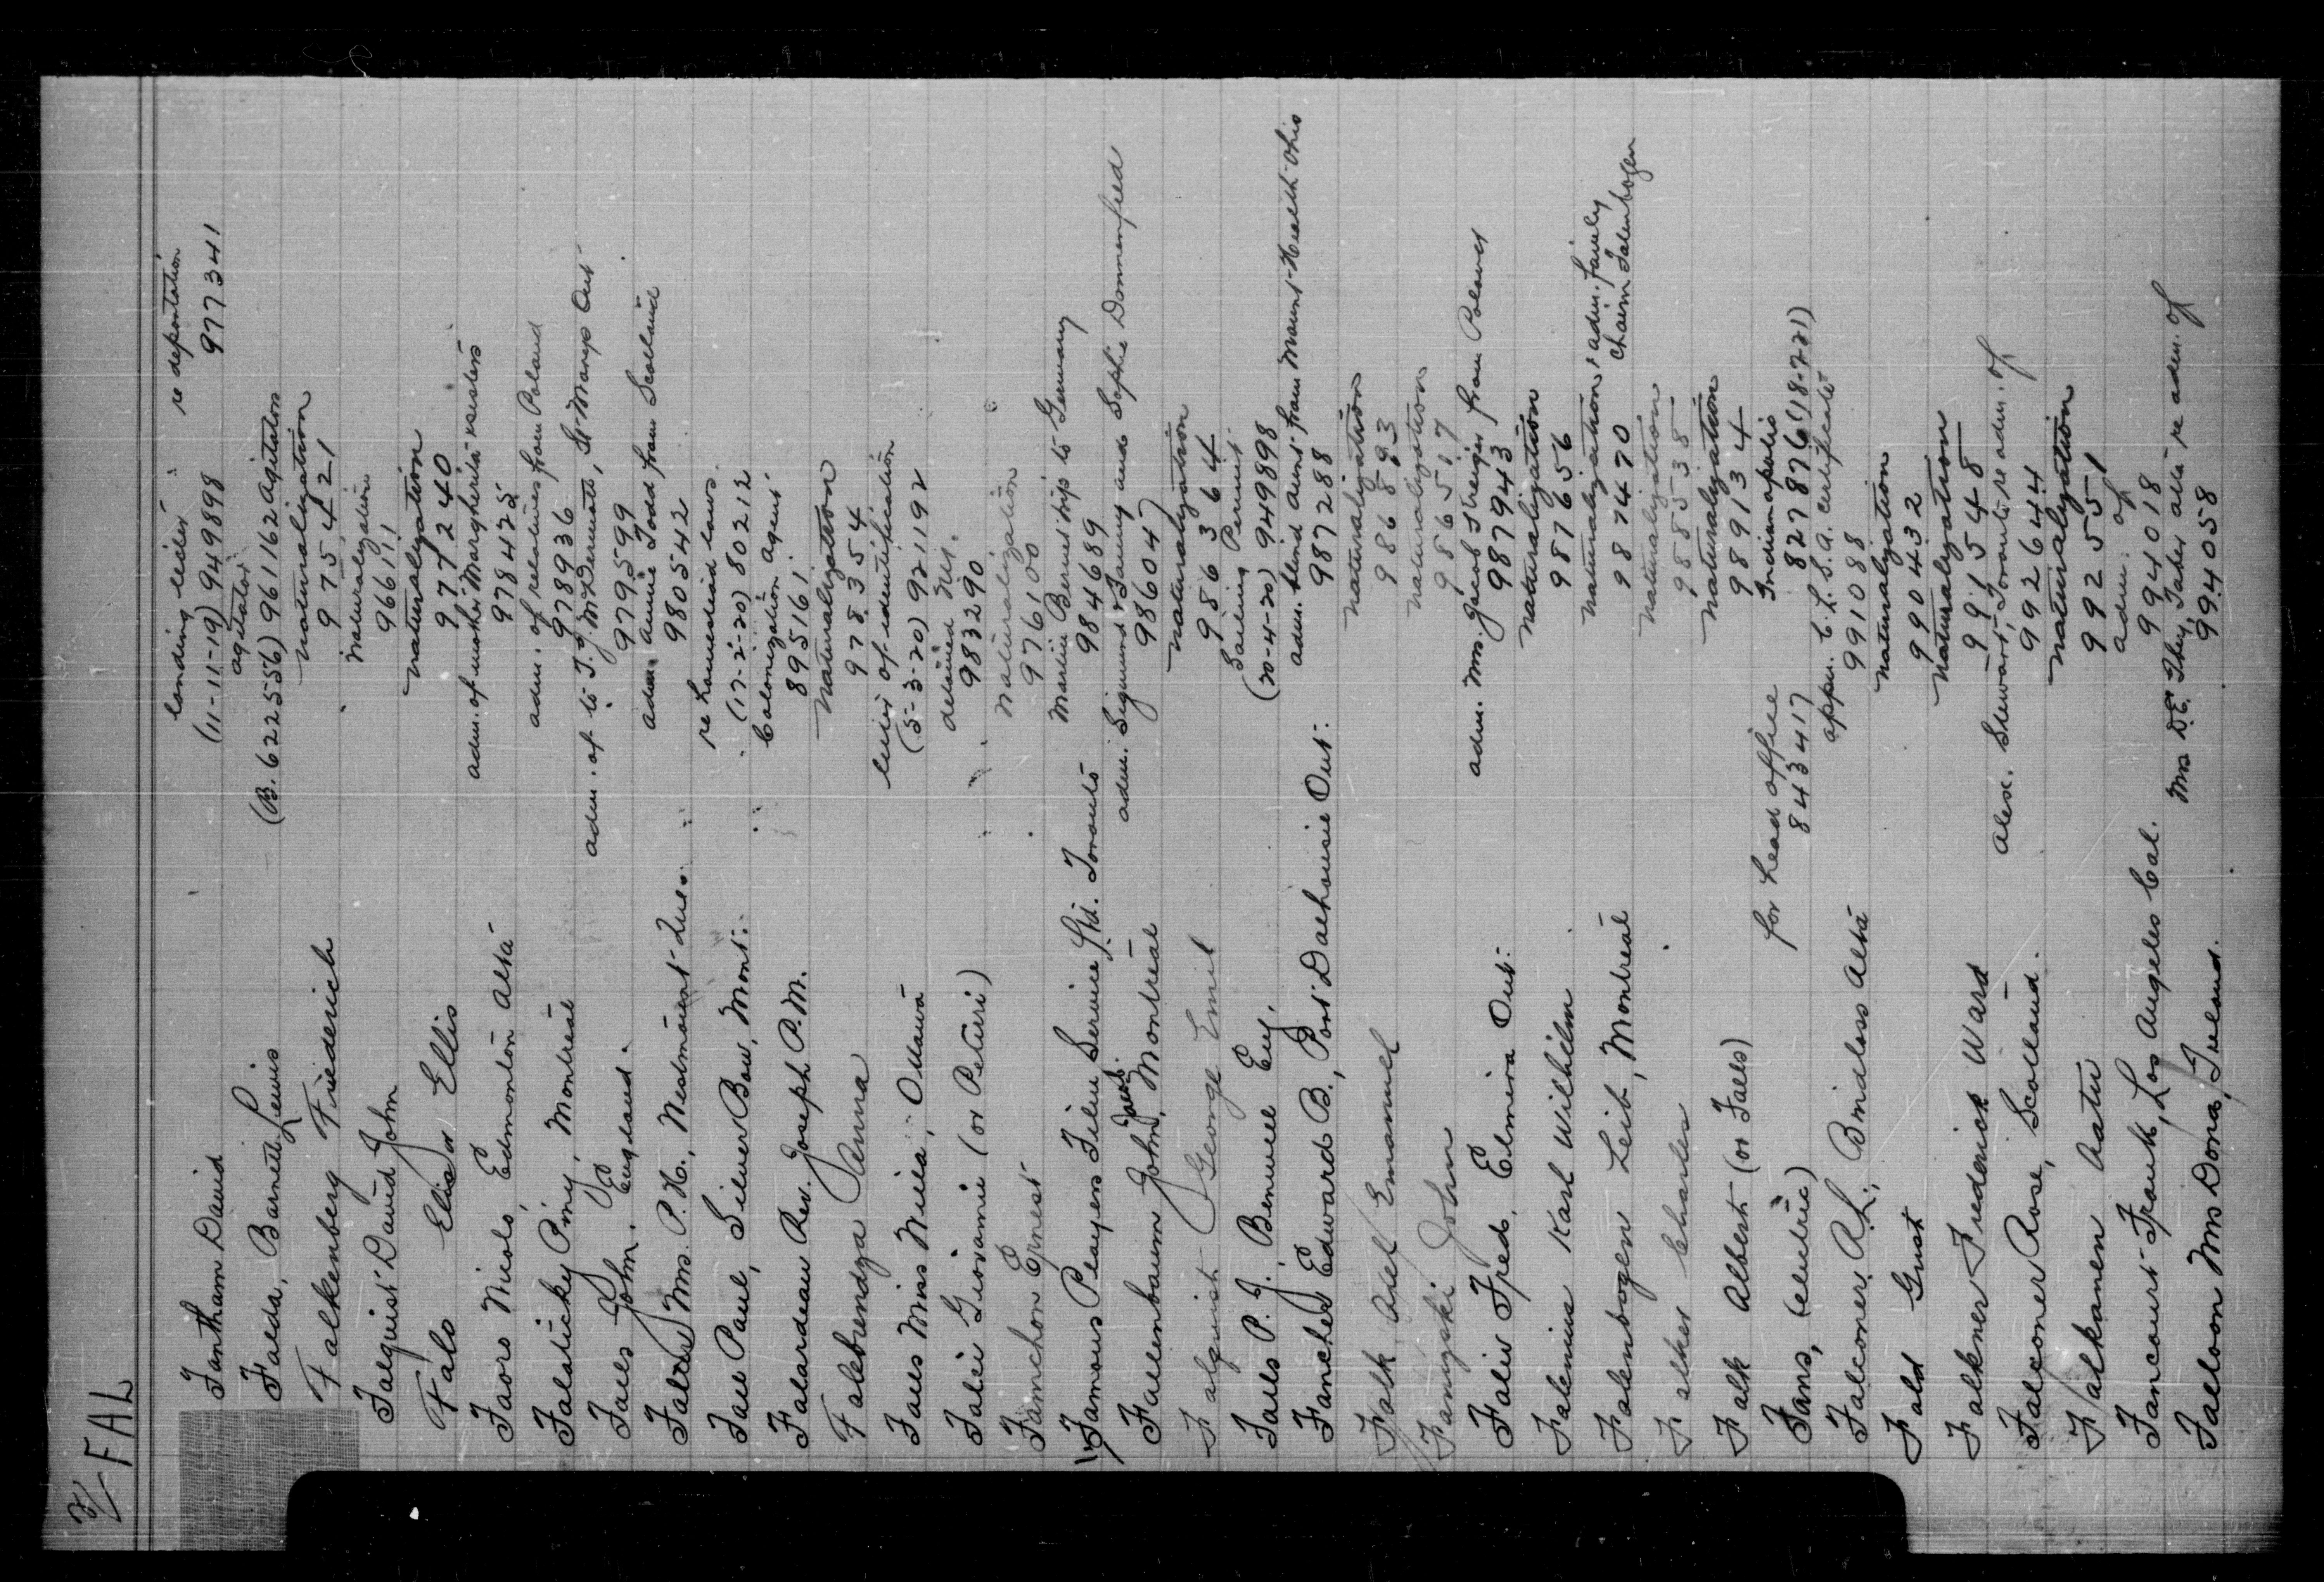 3/ FAL
landing ticket re deportation
Fantham David (11-11-19) 949898 977341
agitator
Falda, Barnett Lewis (B. 622556) 961162 Agitators
naturalization
Falkenberg Friederich 975421
Naturalization
Falquist David John 966111
naturalization
Fals Elias or Ellis 977240
adm. of mother Margherita & sisters
Faors Nicolo, Edmonton Alta 978425
adm. of relatives from Poland
Falaticky Piny, Montreal 978936
adm. of to T. J. McDermott, St-Marys Ont
Falls John, England. 979599
adm. Annie Todd from Scotland
Mrs. P. H., Westmount Que. 980542
re homestead laws
Fall Paul, Silver Bow, Mont: (17-2-20) 80212
Colonization Agent
Falardeau Rev. Joseph P. M. 895161
Naturalization
Falebrendza Anna 978354
letter of identification
Falls Miss Mella, Ottawa (5-3-20) 921192
detained
Falci Giovanni (or Peturri) 983290
Naturalization
Famchon Ernest 976100
Martin Bernet trip to Germany
Famous Players Film Service Ltd. Toronto 984689
adm. Sigmund & Fanny and Sophie Donnenfeld
Fallenbaum John, Montreal 986047
naturalization
Falquist George Emil 986364
Sailing Permit
Falls P. J. Benwell Eng. (20-4-20) 949898
adm. blind aunt from Mount-Health-Ohio
Fancher Edward B., Port Dalhousie Ont: 987288
naturalization
Falk Axel Emanuel 986893
naturalization
Fanyski John 986517
adm. Mrs. Jacob Streiger from Poland
Faliv Fred, Elmira Ont: 987943
naturalization
Falenius Karl Wilhilm 987656
naturalization, adm. family
Falenbogen Leib, Montreal 987470 Chaim Falenbogen
naturalization
Falker Charles 988538
naturalization
Falk Albert (or Falls) 989134
for head office Indianapolis
Fans, (electric) 843417 827876 (18-7-21)
appn. C. L. S. A. certificate
Falconer, A. L., Brialoss Alta 991088
naturalization
Fald Gust 990432
naturalization
Falkner Frederick Ward 991548
Alex. Stewart, Toronto re adm. of
Falconer Rose, Scotland. 992644
naturalization
Falkanen Aatu 992551
adm. of
Fancourt Frank, Los Angeles Cal. 994018
Mrs D.E. They, Taber Alta re adm. of
Falloon Mrs Dora, Ireland. 994058